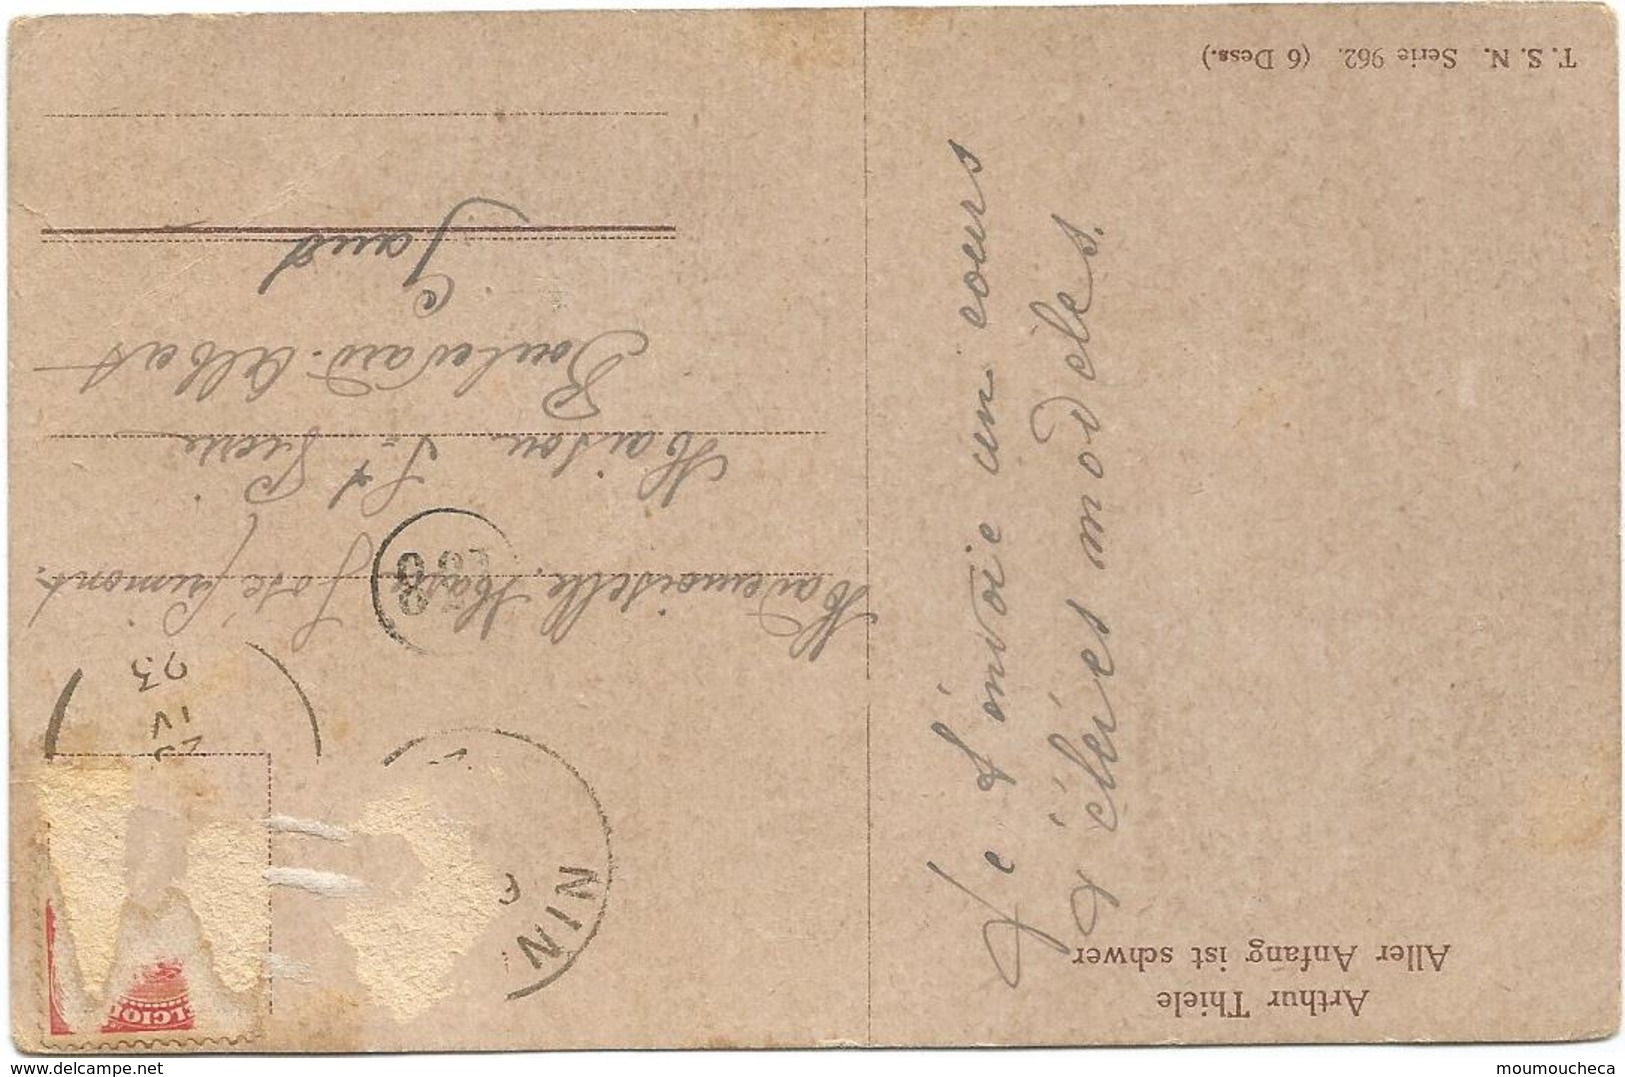 Arthur Thiele
Aller Anfang ist schwer
Je t'envoie un cours
d'élèves modèles.
T. S. N. Serie 962. (6 Dess.)
NIN
IV
23
Mademoiselle Marie José
Maison St Pierre
Boulevard Albert
Gand
delcampe.net
moumoucheca